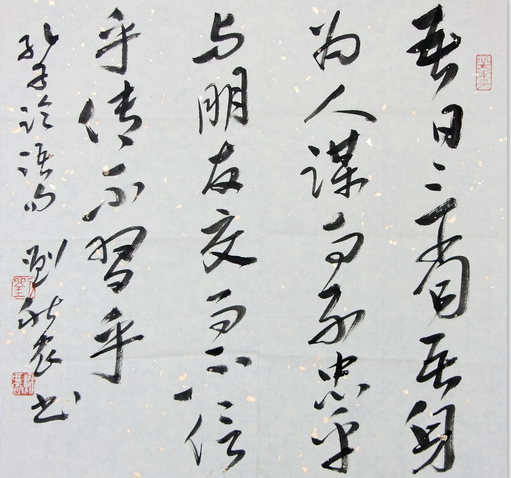 吾日三省吾身
为人谋而不忠乎
与朋友交而不信
乎传不習乎
孔子论语句 劉农书